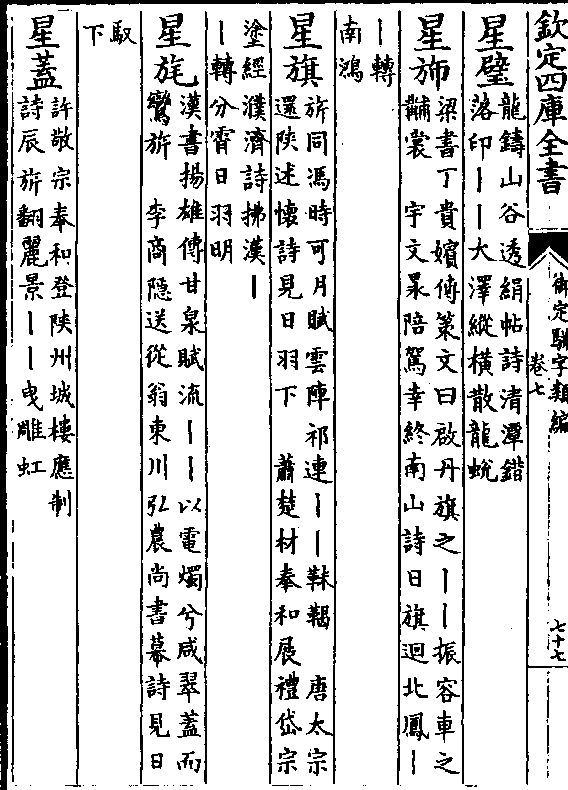 欽定四庫全書
御定駢字類編
卷七
七十七
星璧
龍鑄山谷透絹帖詩清潭鍇
落印丨丨大澤縱横散龍蛻
星斾
梁書丁貴嬪傳䇿文曰啟丹旗之丨丨振容車之
黼裳　宇文㬎陪駕幸終南山詩日旗迴北鳳丨
丨轉
南鴻
星旗
旂同馮時可月賦雲陣祁連丨丨靺鞨　唐太宗
還陝述懷詩見日羽下　蕭楚材奉和展禮岱宗
塗經濮濟詩拂漢丨
丨轉分霄日羽明
星旄
漢書揚雄傳甘泉賦流丨丨以電燭兮咸翠蓋而
鸞旂　李商隱送從翁東川弘農尚書幕詩見日
馭
下
星蓋
許敬宗奉和登陜州城樓應制
詩辰旂翻麗景丨丨曳雕虹